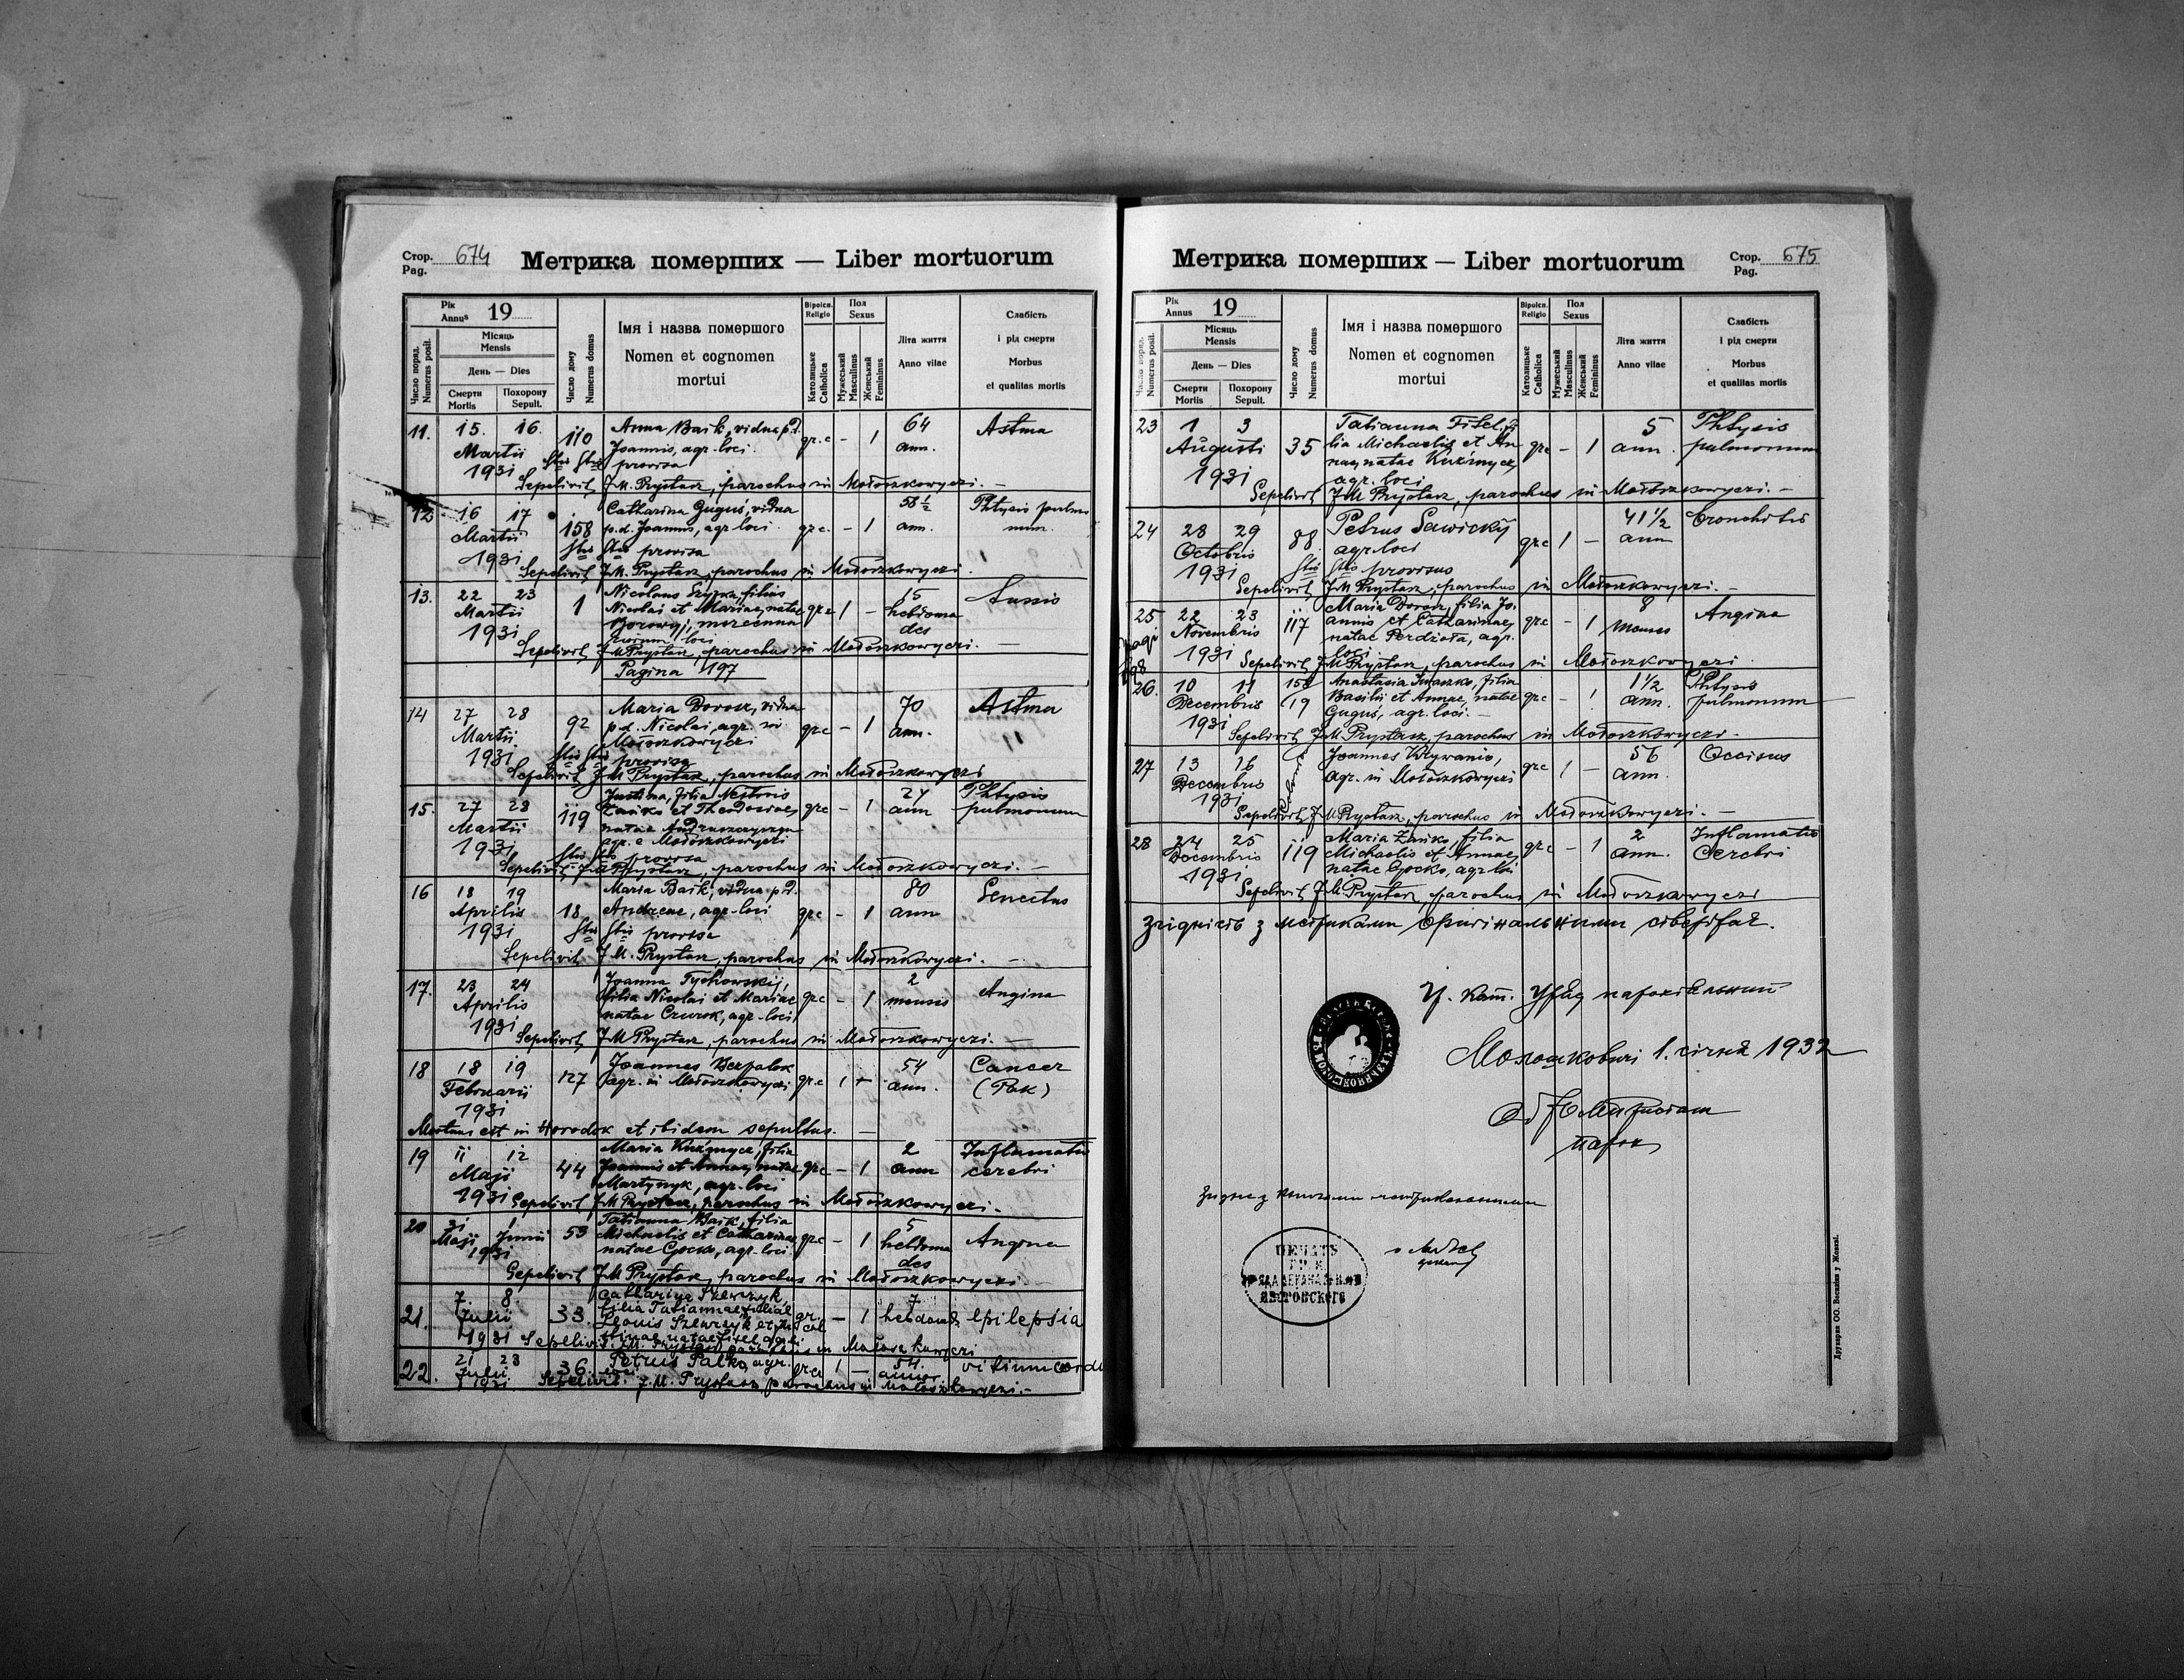 Стор. 674
Pag.
Метрика померших — Liber mortuorum
Рік
Annus 19
Місяць
Mensis
День — Dies
Смерти
Mortis
Похорону
Sepult.
Число поряд.
Numerus posit.
Число дому
Numerus domus
Імя і назва помершого
Nomen et cognomen
mortui
Віроісп.
Religio
Католицьке
Catholica
Пол
Sexus
Мужеський
Masculinus
Женський
Femininus
Літа життя
Anno vitae
Слабість
і рід смерти
Morbus
et qualitas mortis
11. 15. 16. Martii 1931 110 Anna Baik, vidua p.d. gr.c - 1 64 ann. Astma
Joannis, agr. loci.
Stis Stis provisa
Sepelivit J.M. Prystasz, parochus in Mołoszkowyczi. —
12 16 17 Martii 1931 158 Catharina Guguś, vidua gr.c. - 1 58 ½ ann. Phtysis pulmo
p.d. Joannis, agr. loci num.
Stis Stis provisa
Sepelivit J.M. Prystasz, parochus in Mołoszkowyczi.
13. 22 23 Martii 1931 1 Nicolaus filius gr.c 1 - 5 hebdoma
Nicolai et Mariae, natae des
loci
Sepelivit J.M. Prystasz, parochus in Mołoszkowyczi. —
Pagina 197
14 27 28 Martii 1931 92 Maria Dorosz, vidua gr.c - 1 70 ann. Astma
p.d. Nicolai, agr. in
Mołoszkowyczi
Stis Stis provisa
Sepelivit J.M. Prystasz, parochus in Mołoszkowyczi
15. 27 28 Martii 1931 119 Justina, filia Nestoris gr.c - 1 24 ann Phtysis
Zańko et Theodosiae, pulmonum
natae
agr. e Mołoszkowyczi
Stis Stis provisa
Sepelivit J.M. Prystasz, parochus in Mołoszkowyczi. —
16 18 19 Aprilis 1931 18 Maria Baik, vidua p.d. gr.c - 1 80 ann Senectus
Andreae, agr. loci
Stis Stis provisa
Sepelivit J.M. Prystasz, parochus in Mołoszkowyczi. —
17. 23 24 Aprilis 1931 Joanna Tychowskij, gr.c - 1 2 menses Angina
filia Nicolai et Mariae
natae Czurok, agr. loci
Sepelivit J.M. Prystasz, parochus in Mołoszkowyczi. —
18 18 19 Februarii 1931 127 Joannes Bezpalok gr.c 1 + 54 ann. Cancer
agr. in Mołoszkowyczi (Рак)
Mortuus est in Horodok et ibidem sepultus. —
19 11 12 Maji 1931 44 Maria Kuźmycz, filia gr.c - 1 2 ann Inflamatio
Joannis et Annae, natae cerebri
Martynyk, agr. loci
Sepelivit J.M. Prystasz, parochus in Mołoszkowyczi. —
20 31 Maji 1 Junii 1931 53 Tatianna Baik, filia gr.c - 1 5 hebdoma Angina
Michaelis et Catharinae des
natae Gocko, agr. loci
Sepelivit J.M. Prystasz, parochus in Mołoszkowyczi.
21. 7. 8. Julii 1931 33. Catharina Szewczyk, gr. cat - 1 7 hebdomad. epilepsia
filia Tatiannae filiae
Szewczyk et
natae Fitel agr.
Sepelivit J.M. Prystasz parochus in Mołoszkowyczi
22. 21 23 Julii 1931 36 Petrus Palko, agr. gr.c 1 — 54. annor. vitium cordis
Sepelivit J.M. Prystasz parochus in Mołoszkowyczi. —
Метрика померших — Liber mortuorum
Стор. 675
Pag.
Рік
Annus 19
Місяць
Mensis
День — Dies
Смерти
Mortis
Похорону
Sepult.
Число поряд.
Numerus posit.
Число дому
Numerus domus
Імя і назва помершого
Nomen et cognomen
mortui
Віроісп.
Religio
Католицьке
Catholica
Пол
Sexus
Мужеський
Masculinus
Женський
Femininus
Літа життя
Anno vitae
Слабість
і рід смерти
Morbus
et qualitas mortis
23 1 3 Augusti 1931 35 Tatianna Fitel, fi gr.c - 1 5 ann. Phtysis
lia Michaelis et An pulmonum
nae, natae Kuźmycz,
agr. loci
Sepelivit J.M. Prystasz, parochus in Mołoszkowyczi. —
24 28 29 Octobris 1931 88. Petrus Sawickij gr.c 1 - 41 1/2 ann bronchitis
agr. loci
Stis Stis provisus
Sepelivit J.M. Prystasz, parochus in Mołoszkowyczi. —
25 22 23 Novembris 1931 117 Maria Dorosz, filia Jo- gr.c - 1 8 menses Angina
annis et Catharinae,
natae Perdzioła, agr.
loci.
Sepelivit J.M. Prystasz, parochus in Mołoszkowyczi
26. 10 11 Decembris 1931 Anastasia Iwaszko, filia gr.c - 1 1 1/2 ann. Phtysis
Basilii et Annae, natae pulmonum
Guguś, agr. loci. —
Sepelivit J.M. Prystasz, parochus in Mołoszkowyczi. —
27 13 16 Decembris 1931 Joannes Krywanio, gr.c 1 - 56 ann. Occisus
agr. in Mołoszkowyczi
Sepelivit J.M. Prystasz, parochus in Mołoszkowyczi. —
28 24 25 Decembris 1931 119 Maria Zańko, filia gr.c - 1 2 ann. Inflamatio
Michaelis et Annae, Cerebri
natae Gocko, agr. loci
Sepelivit J.M. Prystasz, parochus in Mołoszkowyczi
Згідність з метриками оригінальними стверджаю.
Гр. кат. Уряд парохіяльний
Молошковичі 1. січня 1932
парох
Згідне з книгами метрикальними
ПЕЧАТЬ
ЯВОРОВСКОГО
Друкарня ОО. Василіян у Жовкві.